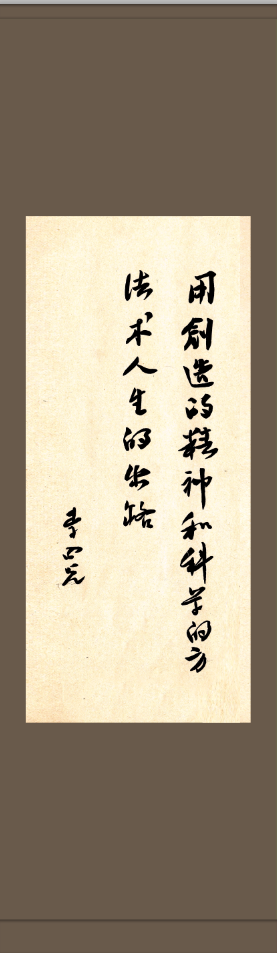 用創造的精神和科学的方
法求人生的出路
李四光